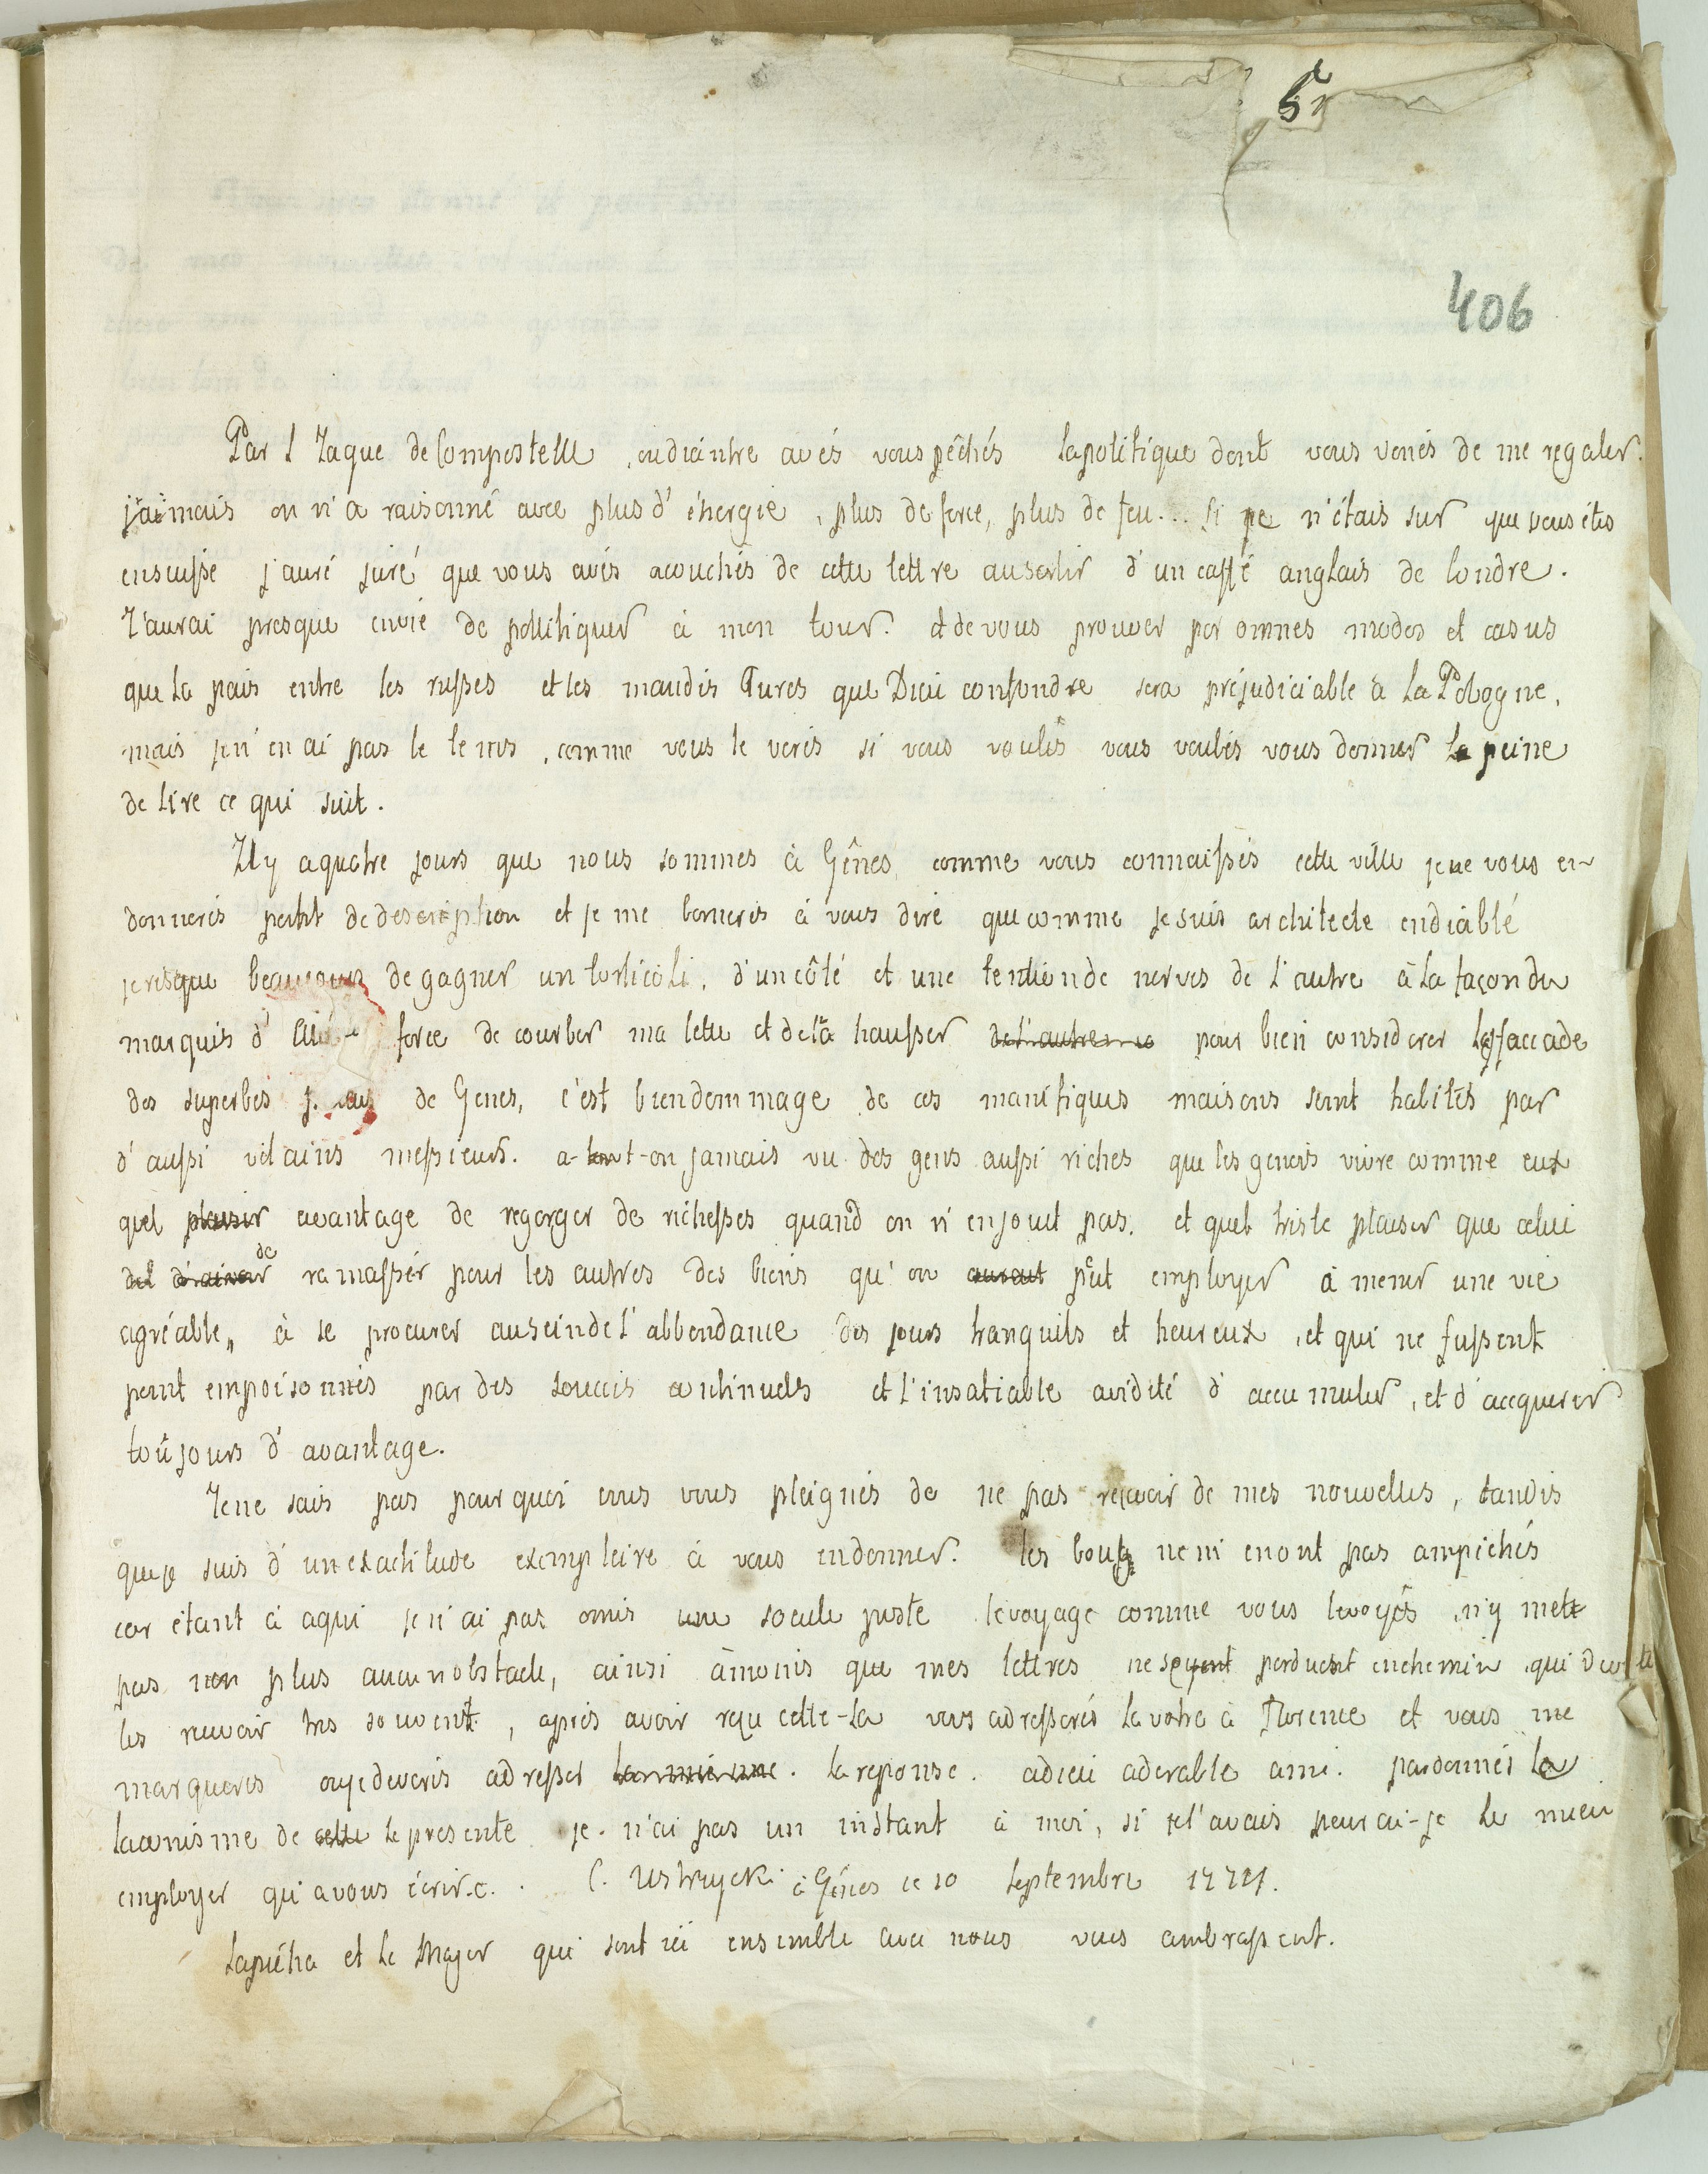 406
Par S Jaque de Compostelle, ou diantre avés vous pêchés la politique dont vous venés de me regaler.
jaimais on n'a raisonné avec plus d'énergie, plus de force, plus de feu... Si je n'étais sur que vous étes
en suisse j'auré juré que vous avés acouchés de cette lettre au sortir d'un caffé anglais de londre.
J'aurai presque envié de politiquer à mon tour. et de vous prouver per omnes modos et casus
que la pais entre les russes et les maudis Turcs que Dieu confondre sera préjudiciable à la Pologne,
mais je n'en ai pas le tems, comme vous le verés si vous voulés vous voulés vous donner la peine
de lire ce qui suit.
Il y a quatre jours que nous sommes à Gênes, comme vous connaissés cette ville je ne vous en
donnerés point de description et je me bornerés à vous dire que comme je suis architecte endiablé
je risque beaucoup de gagner un torticoli, d'un côté et une tention de nerves de l'autre à la façon du
marquis d' force de courber ma tette et de la hausser de l'autre pour bien considerer les faccade
des superbes de Genes, c'est bien dommage de ces manifiques maisons soint habités par
d'aussi vilains messieurs. a-t-on jamais vu des gens aussi riches que les genois vivre comme eux
quel plaisir avantage de regorger de richesses quand on n'en jouit pas. et quel triste plaiser que celui
de d'avoir ramasser pour les autres des biens qu'on aurait pût employer à mener une vie
agréable, à se procurer au sein de l'abbondance des jours tranquils et heureux, et qui ne fussent
point empoisonnés par des soucis continuels et l'insatiable avidité d'accumuler, et d'accquerir
toûjours d'avantage.
Je ne sais pas pourquoi vous vous pleignés de ne pas reçevoir de mes nouvelles, tandis
que je suis d'un exactitude exemplaire à vous en donner. les ne m'en ont pas ampéchés
car étant à aqui je n'ai pas omis une soeule poste le voyage comme vous le voyés, n'y mett
pas non plus aucun obstacle, ainsi à moins que mes lettres ne soyent perduent en chemin, qui
les reuvoir tres souvent, après avoir reçu cette-la vous adresserés la votre à Florence et vous me
marqueres ou je deverés adresser la mienne. la reponse. adieu adorable ami. pardonnés le
laconisme de cette le presente je n'ai pas un instant à moi, si je l'avais pourai-je le mieu
employer qu'a vous écrire. C. Ustrzycki à Gênes ce 10 Septembre
Sapiéha et le Major qui sont ici ensemble avec nous vous ambrassent.